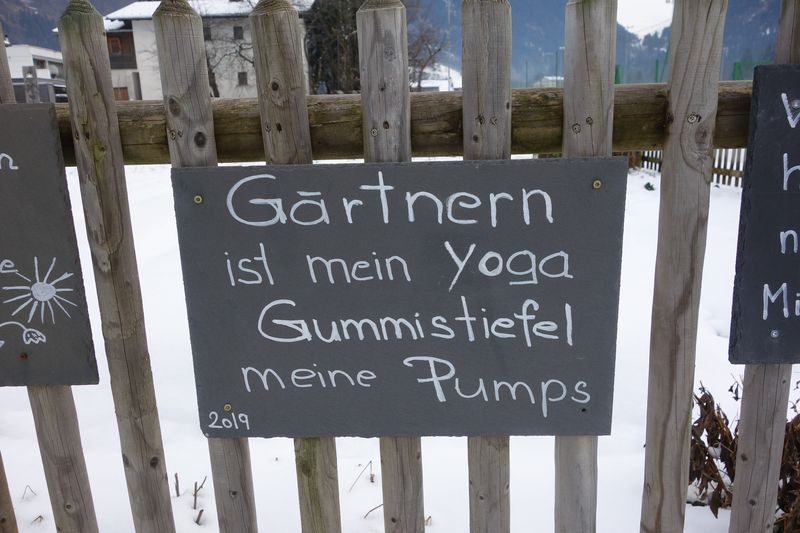 Gärtnern
ist mein Yoga
Gummistiefel
meine Pumps
2019